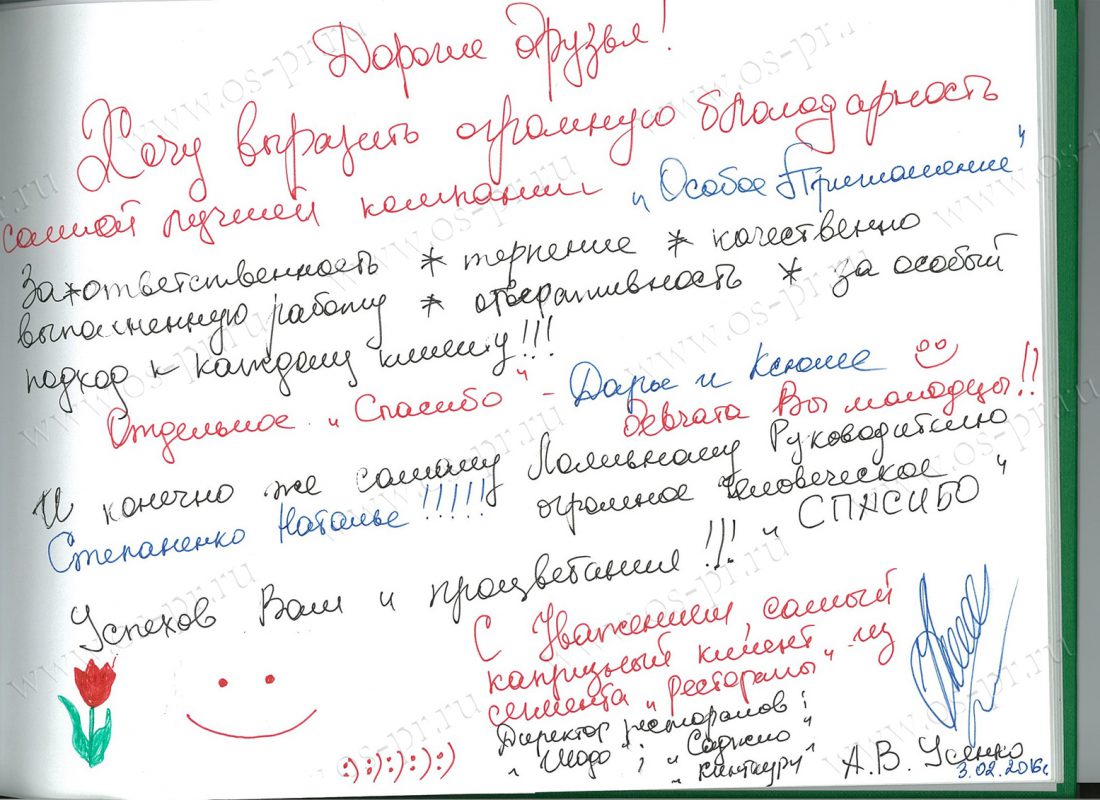 Дорогие друзья!
Хочу выразить огромную благодарность
самой лучшей компании „Особое Приглашение"
За * ответственность * терпение * качественно
выполненную работу * оперативность * за особый
подход к каждому клиенту!!!
Отдельное „Спасибо" - Дарье и Ксюше
девчата Вы молодцы!!
И конечно же самому Руководителю
Степаненко Наталье!!!!! огромное человеческое
„СПАСИБО"
Успехов Вам и процветания!!!
С Уважением, самый
капризный клиент из
сегмента „Рестораны"
Директор ресторанов:
„Шодо"; „
„Кинтаури"
А.В. Усенко
3.02.2016г
:):):):):)
www.os-pr.ru